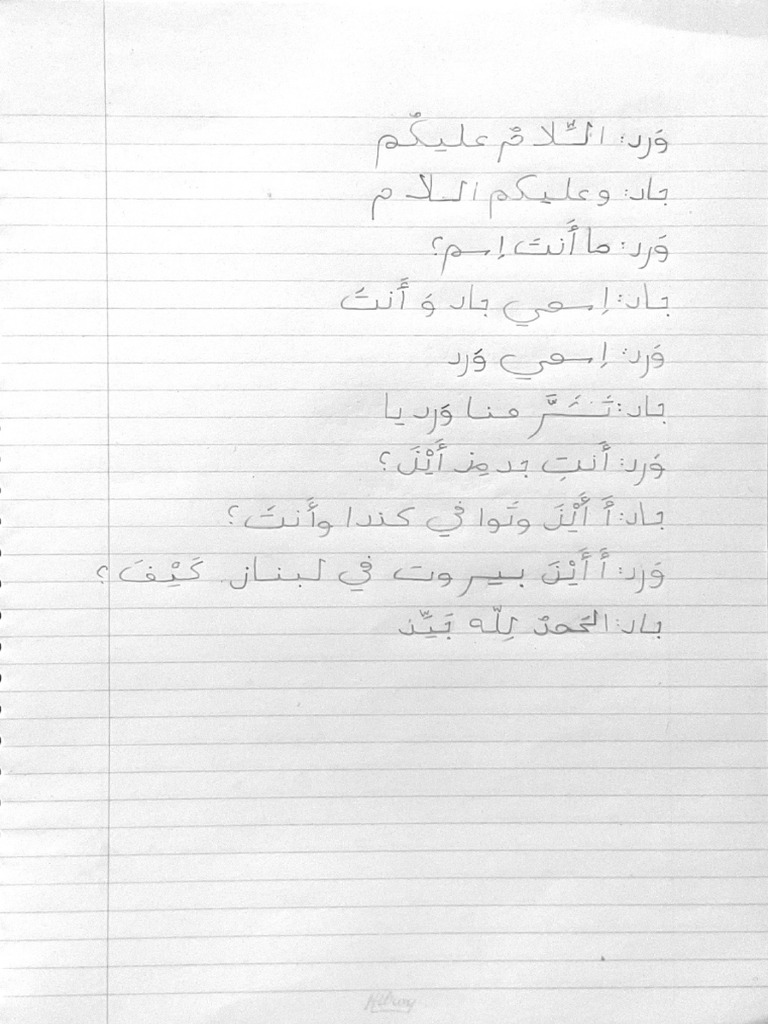 وَرد: السّلامُ عليكُم
جاد: وعليكم السلام
وَرد: ما أَنتَ إسم؟
جاد: إسمي جاد وَ أَنتَ
وَرد: إسمي وَرد
جاد: تَشَرَّ منا وَرد يا
وَرد: أَنتِ جد مِن أَيْنَ؟
جاد: أَ أَيْنَ وتَوا في كندا وأَنتَ؟
وَرد: أَ أَيْنَ بيروت في لبنان. كَيْفَ؟
جاد: الحَمدُ لِلّه جَيِّد